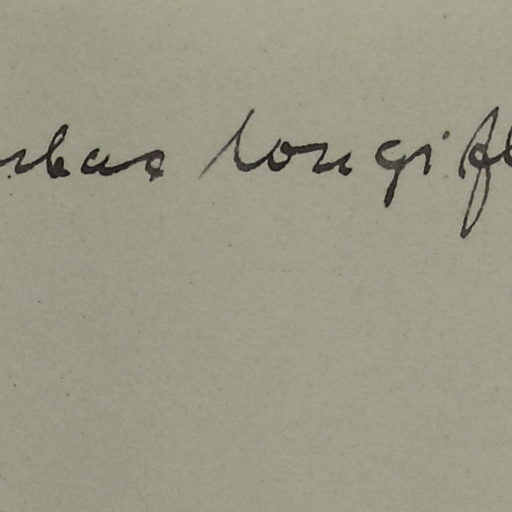 rbae longifl